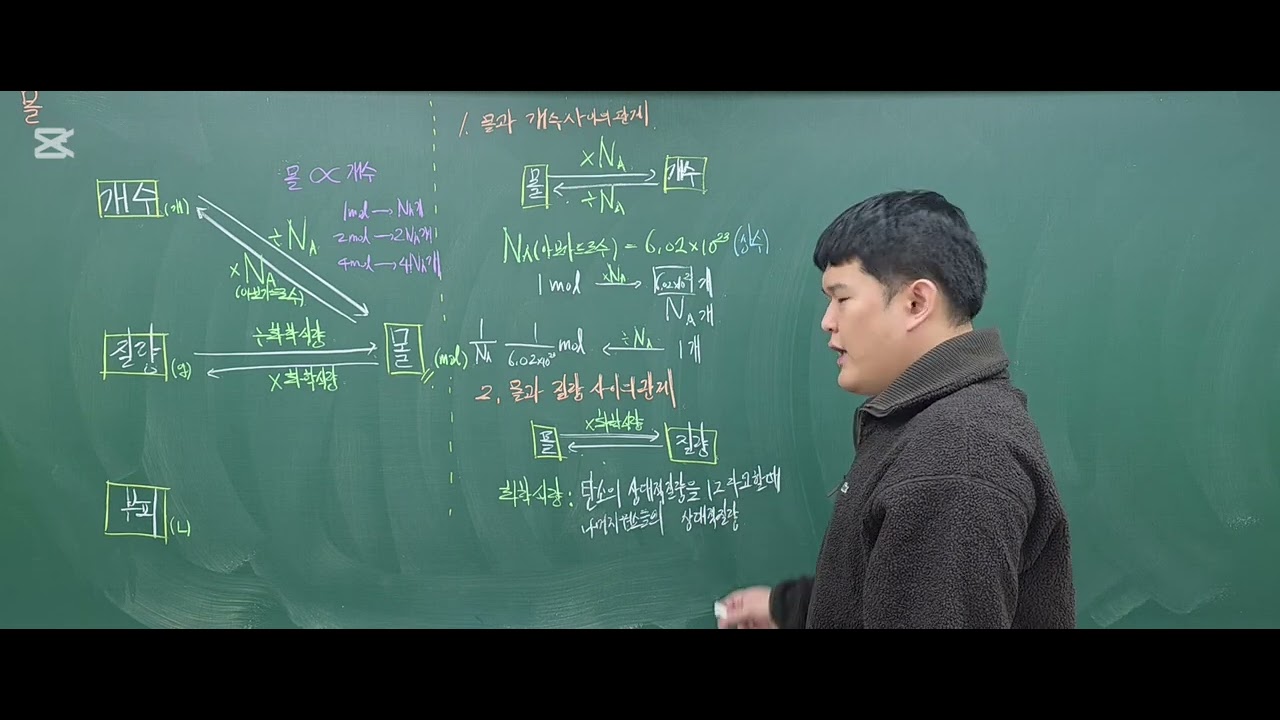 몰
개수 (개)
÷NA
×NA
(아보가드로수)
몰 ∝ 개수
1mol → NA개
2mol → 2NA개
4mol → 4NA개
질량 (g)
÷화학식량
×화학식량
몰 (mol)
부피 (L)
1. 몰과 개수 사이의 관계
몰 ×NA 개수
÷NA
NA(아보가드로수) = 6.02×10²³ (상수)
1mol ×NA → 6.02×10²³ 개
NA개
1/NA 1/6.02×10²³ mol ← ÷NA 1개
2. 몰과 질량 사이의 관계
몰 ×화학식량 질량
화학식량 : 탄소의 상대적질량을 12라고할때
나머지 원소들의 상대적질량